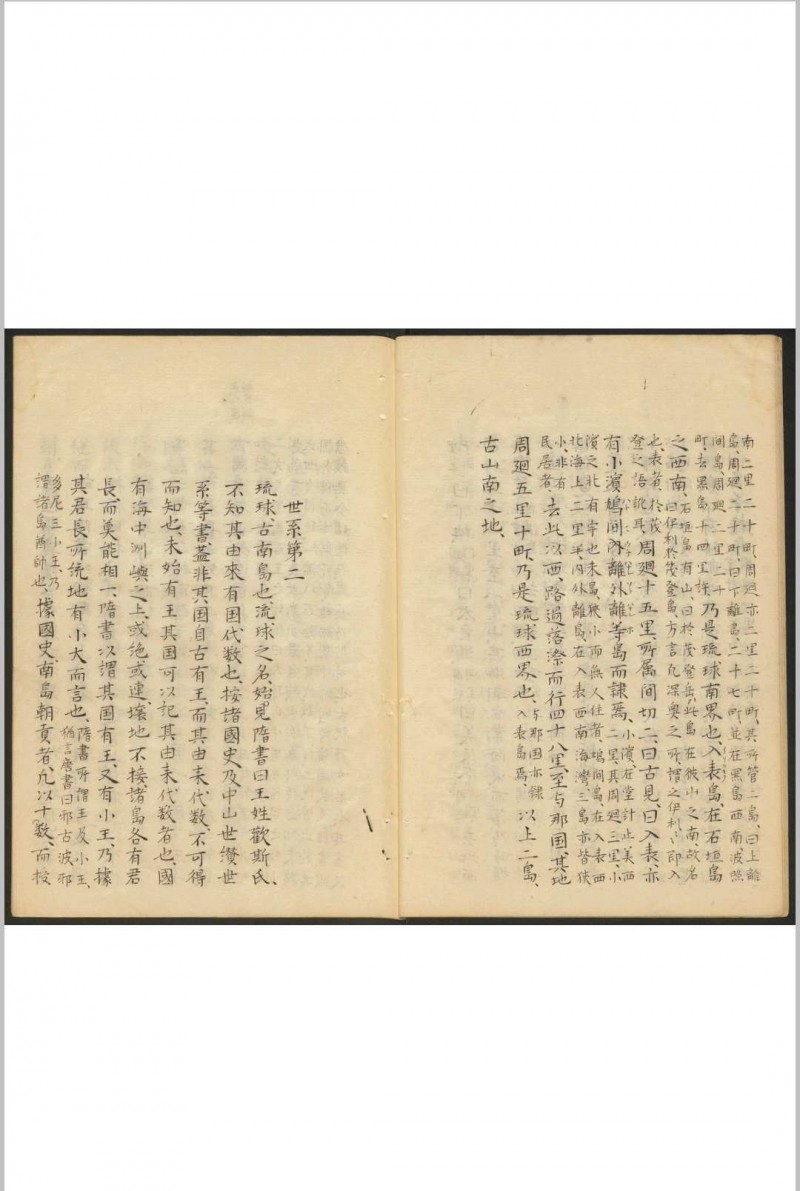 南二里二十町、周廻亦二里二十町、其所管二島、曰上離
島、周廻二十町、曰下離島、二十七町、並在黑島西南、波照
間島、周廻二里二十
町、去黑島十四里許、乃是琉球南界也、入表島、在石垣島
之西南、石垣島有山、曰於茂登岳、此島在彼山之南、故名
曰伊利於茂登島、方言凡深奥之所、謂之伊利、即入
也、表者、於茂
登之語訛耳、周廻十五里、所属間切二、曰古見、曰入表、亦
有小濱鳩間內離外離等島而隷焉、小濱在堂計止美西
二里、其周廻三里、小
濱之北有宇也末島、狹小而無人住者、鳩間島、在入表西
北海上二里半、內外離島、在入表西南海灣、三島亦皆狹
小、非有
民居者、去此以西、路過落漈而行四十八里、至与那国、其地
周廻五里十町、乃是琉球西界也、与那国亦隷
入表島焉、以上二島、
古山南之地、
世系第二
琉球、古南島也、流球之名、始見隋書、曰王姓歡斯氏、
不知其由來有国代数也、按諸國史及中山世纘世
系等書、蓋非其国自古有王、而其由来代数、不可得
而知也、未始有王其国可以記其由来代数者也、國
有海中洲嶼之上、或絶或連、壤地不接、諸島各有君
長、而莫能相一、隋書以謂其国有王、又有小王、乃據
其君長所統地有小大而言也、隋書所謂王及小王、
猶言唐書曰邪古波邪
多尼三小王、乃
謂諸島酋帥也、據國史、南島朝貢者、凡以十数、而按